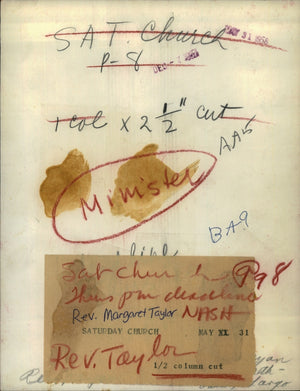 SAT. Church
MAY 31 1956
P-8
DEC - 7
1 col x 2 1/2" cut
AA5
Minister
BA9
Sat Church P98
Thurs pm deadline
Rev. Margaret Taylor NASH
SATURDAY CHURCH MAY XX 31
Rev. Taylor
1/2 column cut